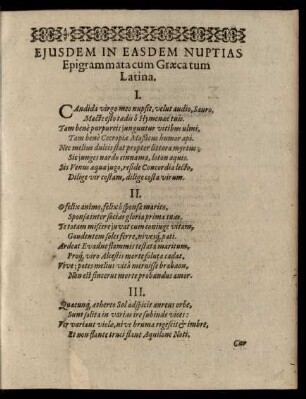 EJUSDEM IN EASDEM NUPTIAS
Epigrammata cum Græca tum
Latina.
I.
CAndida virgo meo nupsit, velut audio, Sauro,
Macte esto tædis ô Hymenæe tuis.
Tam benè purpureis junguntur vitibus ulmi,
Tam benè Cecropiæ Massicus humor api.
Nec melius dulcis stat propter littora myrtus;
Sic junges nardo cinnama, loton aquis.
Sis Venus aqua jugo, reside Concordia lecto,
Dilige vir costam, dilige costa virum.
II.
O felix animo, felix ô sponse marite,
Sponsa inter socias gloria prima tuas.
Te totam misceri juvat cum conjuge vitam,
Gaudentem soles ferre, nives pati.
Ardeat Evadne flammis testata maritum,
Proq; viro Alcestis morte soluta cadat.
Vive: potes melius vitâ meruisse
Non est sincerus morte probandus amor.
III.
Quacunq; æthereo Sol adspicit aureus orbe,
Sunt solita in varias ire subinde vices:
Ver variant violæ, nive bruma rigescit & imbre,
Et non stante truci stant Aquilone Noti.
Cur